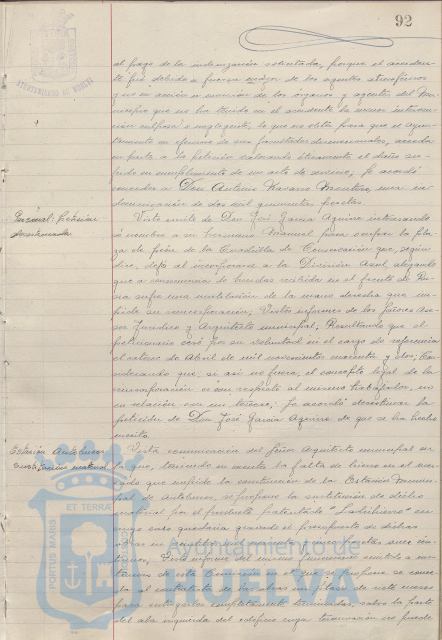 92
AYUNTAMIENTO DE HUELVA
al pago de la indemnización solicitada, porque el acciden-
te fué debido a fuerza mayor de los agentes atmosféricos
y no a acción u omisión de los órganos y agentes del Mu-
nicipio que no ha tenido en el accidente la menor interven-
ción culposa o negligente, lo que no obsta para que el ayun-
tamiento en ejercicio de sus facultades discrecionales, acceda
en parte a la petición valorando el daño su-
frido en cumplimiento de un acto de servicio, se acordó
conceder a Don Antonio Navarro Montero una in-
demnización de dos mil quinientas pesetas.
Personal: Petición
desestimada
Visto escrito de Don José García Aquino interesando
se nombre a su hermano Manuel para ocupar la pla-
za de peón de la Cuadrilla de Conservación que, según
dice, dejó al incorporarse a la División Azul, alegando
que a consecuencia de heridas recibidas en el frente de Ru-
sia sufre una mutilación de la mano derecha que im-
pide su reincorporación; Vistos informes de los Señores Ase-
sor Jurídico y Arquitecto municipal; Resultando que el
peticionario cesó por su voluntad en el cargo de referencia
el catorce de Abril de mil novecientos cuarenta y dos; Con-
siderando que, si así no fuera, el concepto legal de la
reincorporación es con respecto al mismo trabajador, no
en relación con un tercero; Se acordó desestimar la
petición de Don José García Aquino de que se ha hecho
mérito.
Estación Autobuses
Vista comunicación del Señor Arquitecto municipal en
la que, teniendo en cuenta la falta de hierro en el mer-
cado que impide la construcción de la Estación Munici-
pal de Autobuses, se propone la sustitución de dicho
material por el producto patentado "Ladrihierro" en
cuyo caso quedaría gravado el presupuesto de dichas
obras en la cantidad de
céntimos; Visto informe del
la Comisión se acor-
dó al contratista de las obras un plazo de siete meses
para entregarlas completamente terminadas, salvo la parte
del ala izquierda del edificio cuya terminación no puede
PORTUS MARIS ET TERRAE
Ayuntamiento de
HUELVA